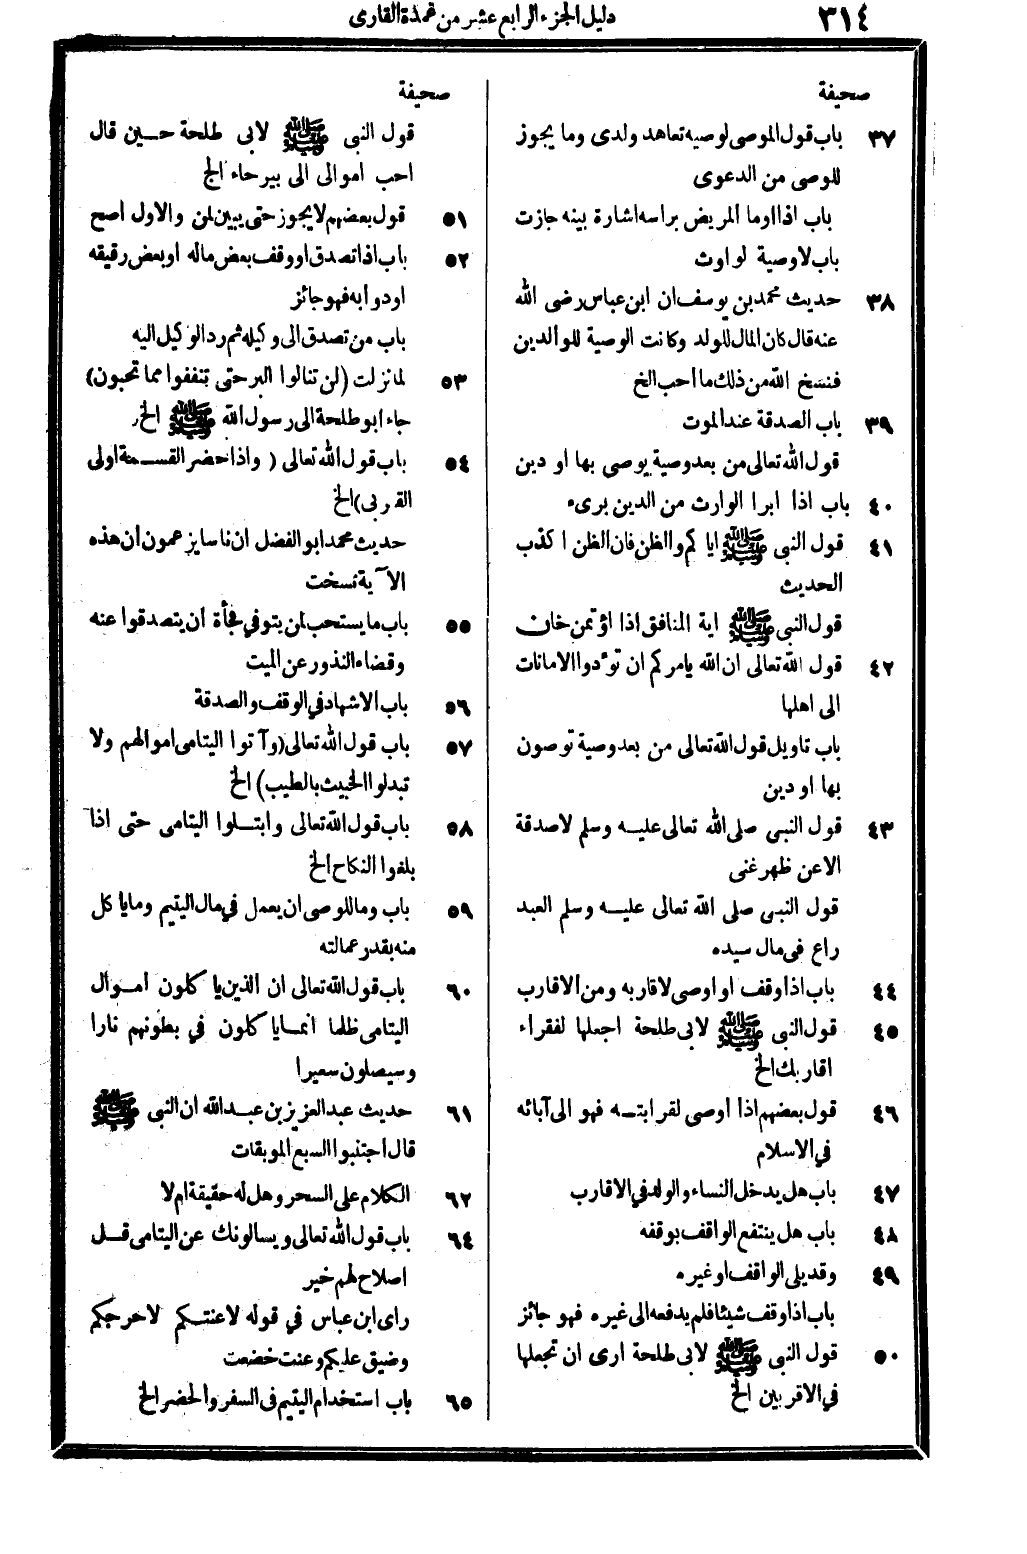 ٣١٤
دليل الجزء الرابع عشر من عمدة القارى
صحيفة
٣٧ باب قول الموصى لوصيه تعاهد ولدى وما يجوز
للوصى من الدعوى
باب اذا اوما المريض براسه اشارة بينه جازت
باب لا وصية لوارث
٣٨ حديث محمد بن يوسف ان ابن عباس رضى الله
عنه قال كان المال للولد وكانت الوصية للوالدين
فنسخ الله من ذلك ما أحب الخ
٣٩ باب الصدقة عند الموت
قول الله تعالى من بعد وصية يوصى بها او دين
٤٠ باب اذا ابرا الوارث من الدين برىء
٤١ قول النبى ﷺ ايا كم والظن فان الظن اكذب
الحديث
قول النبى ﷺ اية المنافق اذا اؤتمن خان
٤٢ قول الله تعالى ان الله يامركم ان تؤدوا الامانات
الى اهلها
باب تاويل قول الله تعالى من بعد وصية توصون
بها او دين
٤٣ قول النبى صلى الله تعالى عليه وسلم لا صدقة
الا عن ظهر غنى
قول النبى صلى الله تعالى عليه وسلم العبد
راع فى مال سيده
٤٤ باب اذا وقف او اوصى لاقاربه ومن الاقارب
٤٥ قول النبى ﷺ لابى طلحة اجعلها لفقراء
اقاربك الخ
٤٦ قول بعضهم اذا أوصى لقرابته فهو الى آبائه
في الاسلام
٤٧ باب هل يدخل النساء والولد في الاقارب
٤٨ باب هل ينتفع الواقف بوقفه
٤٩ وقد يلى الواقف او غيره
باب اذا وقف شيئا فلم يدفعه الى غيره فهو جائز
٥٠ قول النبى ﷺ لابى طلحة ارى ان تجعلها
في الاقربين الخ
صحيفة
قول النبى ﷺ لابى طلحة حين قال
احب اموالى الى بيرحاء الخ
٥١ قول بعضهم لا يجوز حتى يبين لمن والاول اصح
٥٢ باب اذا تصدق او وقف بعض ماله او بعض رقيقه
او دوابه فهو جائز
باب من تصدق الى وكيله ثم رد الوكيل اليه
٥٣ لما نزلت (لن تنالوا البر حتى تنفقوا مما تحبون)
جاء ابو طلحة الى رسول الله ﷺ الخ
٥٤ باب قول الله تعالى (واذا حضر القسمة اولى
القربى) الخ
حديث محمد ابو الفضل ان ناسا يزعمون ان هذه
الآية نسخت
٥٥ باب ما يستحب لمن يتوفي فجأة ان يتصدقوا عنه
وقضاء النذور عن الميت
٥٦ باب الاشهاد في الوقف والصدقة
٥٧ باب قول الله تعالى (وآتوا اليتامى اموالهم ولا
تبدلوا الخبيث بالطيب) الخ
٥٨ باب قول الله تعالى وابتلوا اليتامى حتى اذا
بلغوا النكاح الخ
٥٩ باب وما للوصى ان يعمل في مال اليتيم وما يأكل
منه بقدر عمالته
٦٠ باب قول الله تعالى ان الذين ياكلون أموال
اليتامى ظلما انما ياكلون في بطونهم نارا
وسيصلون سعيرا
٦١ حديث عبد العزيز بن عبد الله ان النبى ﷺ
قال اجتنبوا السبع الموبقات
٦٢ الكلام على السحر وهل له حقيقة ام لا
٦٤ باب قول الله تعالى ويسالونك عن اليتامى قل
اصلاح لهم خير
راى ابن عباس في قوله لاعنتكم لاحرجكم
وضيق عليكم وعنت خضعت
٦٥ باب استخدام اليتيم فى السفر والحضر الخ